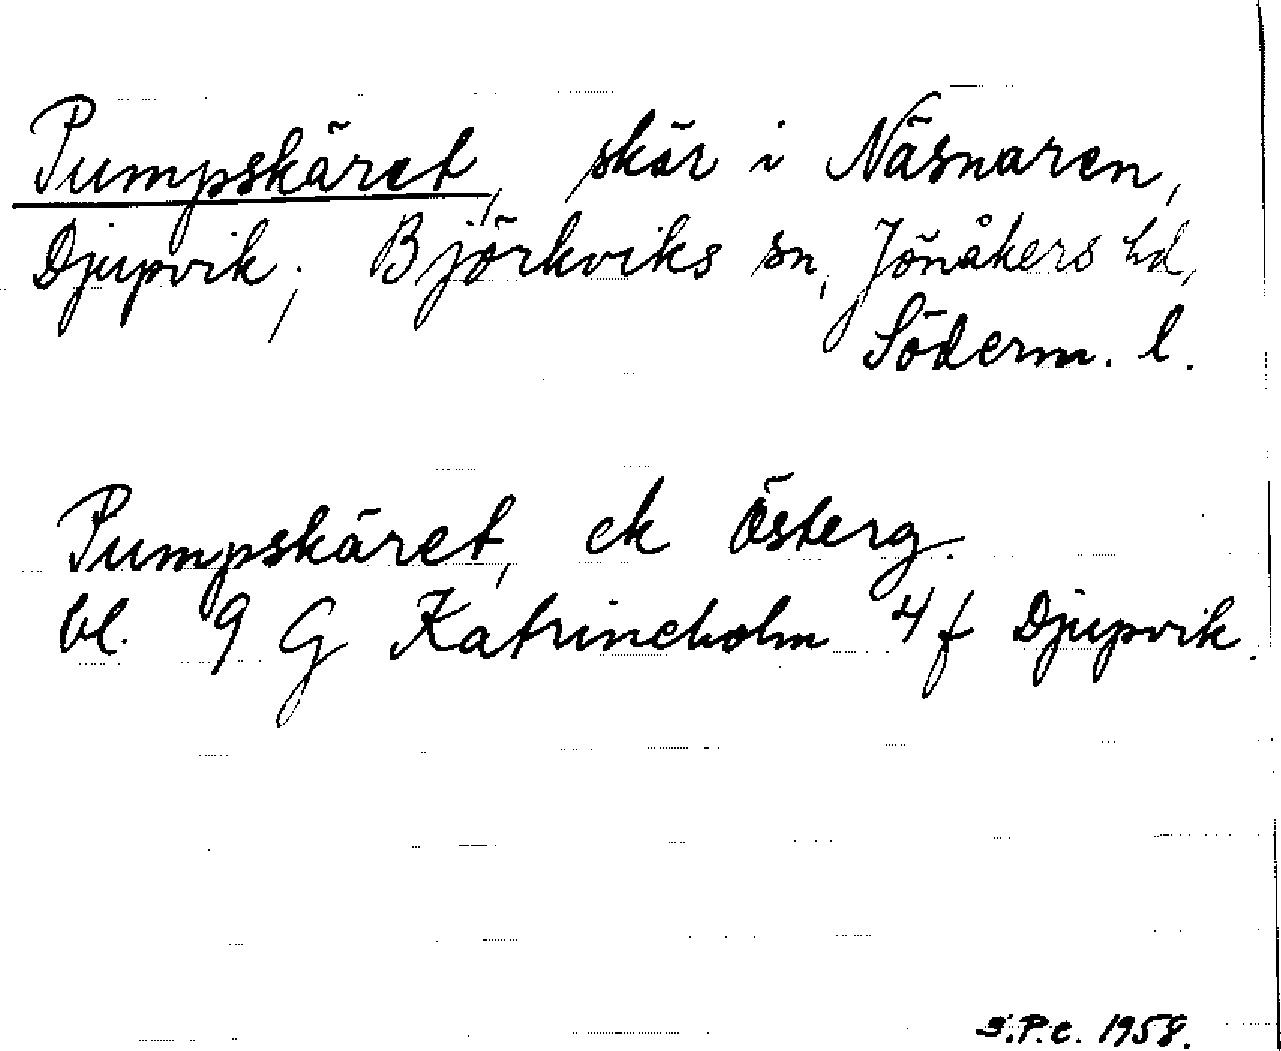 Pumpskäret, skär i Näsnaren,
Djupvik; Björkviks sn, Jönåkers hd,
Söderm. l.
Pumpskäret, ek Österg.
bl. 9 G Katrineholm 4 f Djupvik.
S.P.C. 1958.